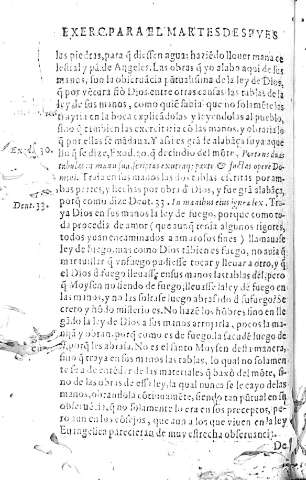 EXERC. PARA EL MARTES DESPVES
las piedras, para q̃ diessen agua: haziẽdo llouer mana ce
lestial y pã de Angeles. Las obras q̃ yo alabo aqui de sus
manos, fue la obseruãcia pũtualissima de la ley de Dios,
q̃ por vẽtura fio Dios entre otras causas las tablas de la
ley de sus manos, como quiẽ sabia que no solamẽte las
traya en la boca explicãdolas y leyendolas al pueblo,
sino q̃ tambien las exercitaria cõ las manos, y obraria lo
q̃ por ellas se mãdaua. Y assi es grã alabãça suya aque
lla q̃ se dize, Exod. 30. q̃ decindio del mõte, Portans duas
Exod. 30.
tabulas in manu sua, scriptas ex utraq; parte & factas opere Do-
mini. Traia en sus manos dos tablas escritas por am-
bas partes, y hechas por obra de Dios, y fue grã alabãça,
porq̃ como dize Deut. 33. In manibus eius ignea lex. Tra
Deut. 33.
ya Dios en sus manos la ley de fuego, porque como to-
da procedia de amor (que aunq̃ tenia algunos rigores,
todos yuan encaminados a amorosos fines) llamauase
ley de fuego, mas como Dios tãbien es fuego, no auia q̃
marauillar q̃ vn fuego pudiesse tocar y lleuar a otro, y q̃
el Dios d̃ fuego lleuasse en sus manos las tablas dẽl, pero
q̃ Moysen no siendo de fuego, lleuasse la ley dẽ fuego en
las manos, y no las soltasse luego abrasado d̃ su fuego? Se
creto y hõdo misterio es. No hazẽ los hõbres, sino en lle
gãdo la ley de Dios a sus manos arrojarla, pocos la ma-
nejã y obran, porq̃ como es de fuego, la sacudẽ luego de
si, porq̃ les abrasa. No es el santo Moysen desta manera,
sino q̃ traya en sus manos las tablas, lo qual no solamen
te se a de entẽder de las materiales q̃ baxò del mõte, si-
no de las obras de essa ley, la qual nunca se le cayo de las
manos, obrandola cõtinuamẽte, siendo tan pũtual en su
obseruãcia, q̃ no solamente lo era en sus preceptos, pe-
ro aun en los cõsejos, que aun a los que viuen en la ley
Euangelica parecieran de muy estrecha obseruancia.
De